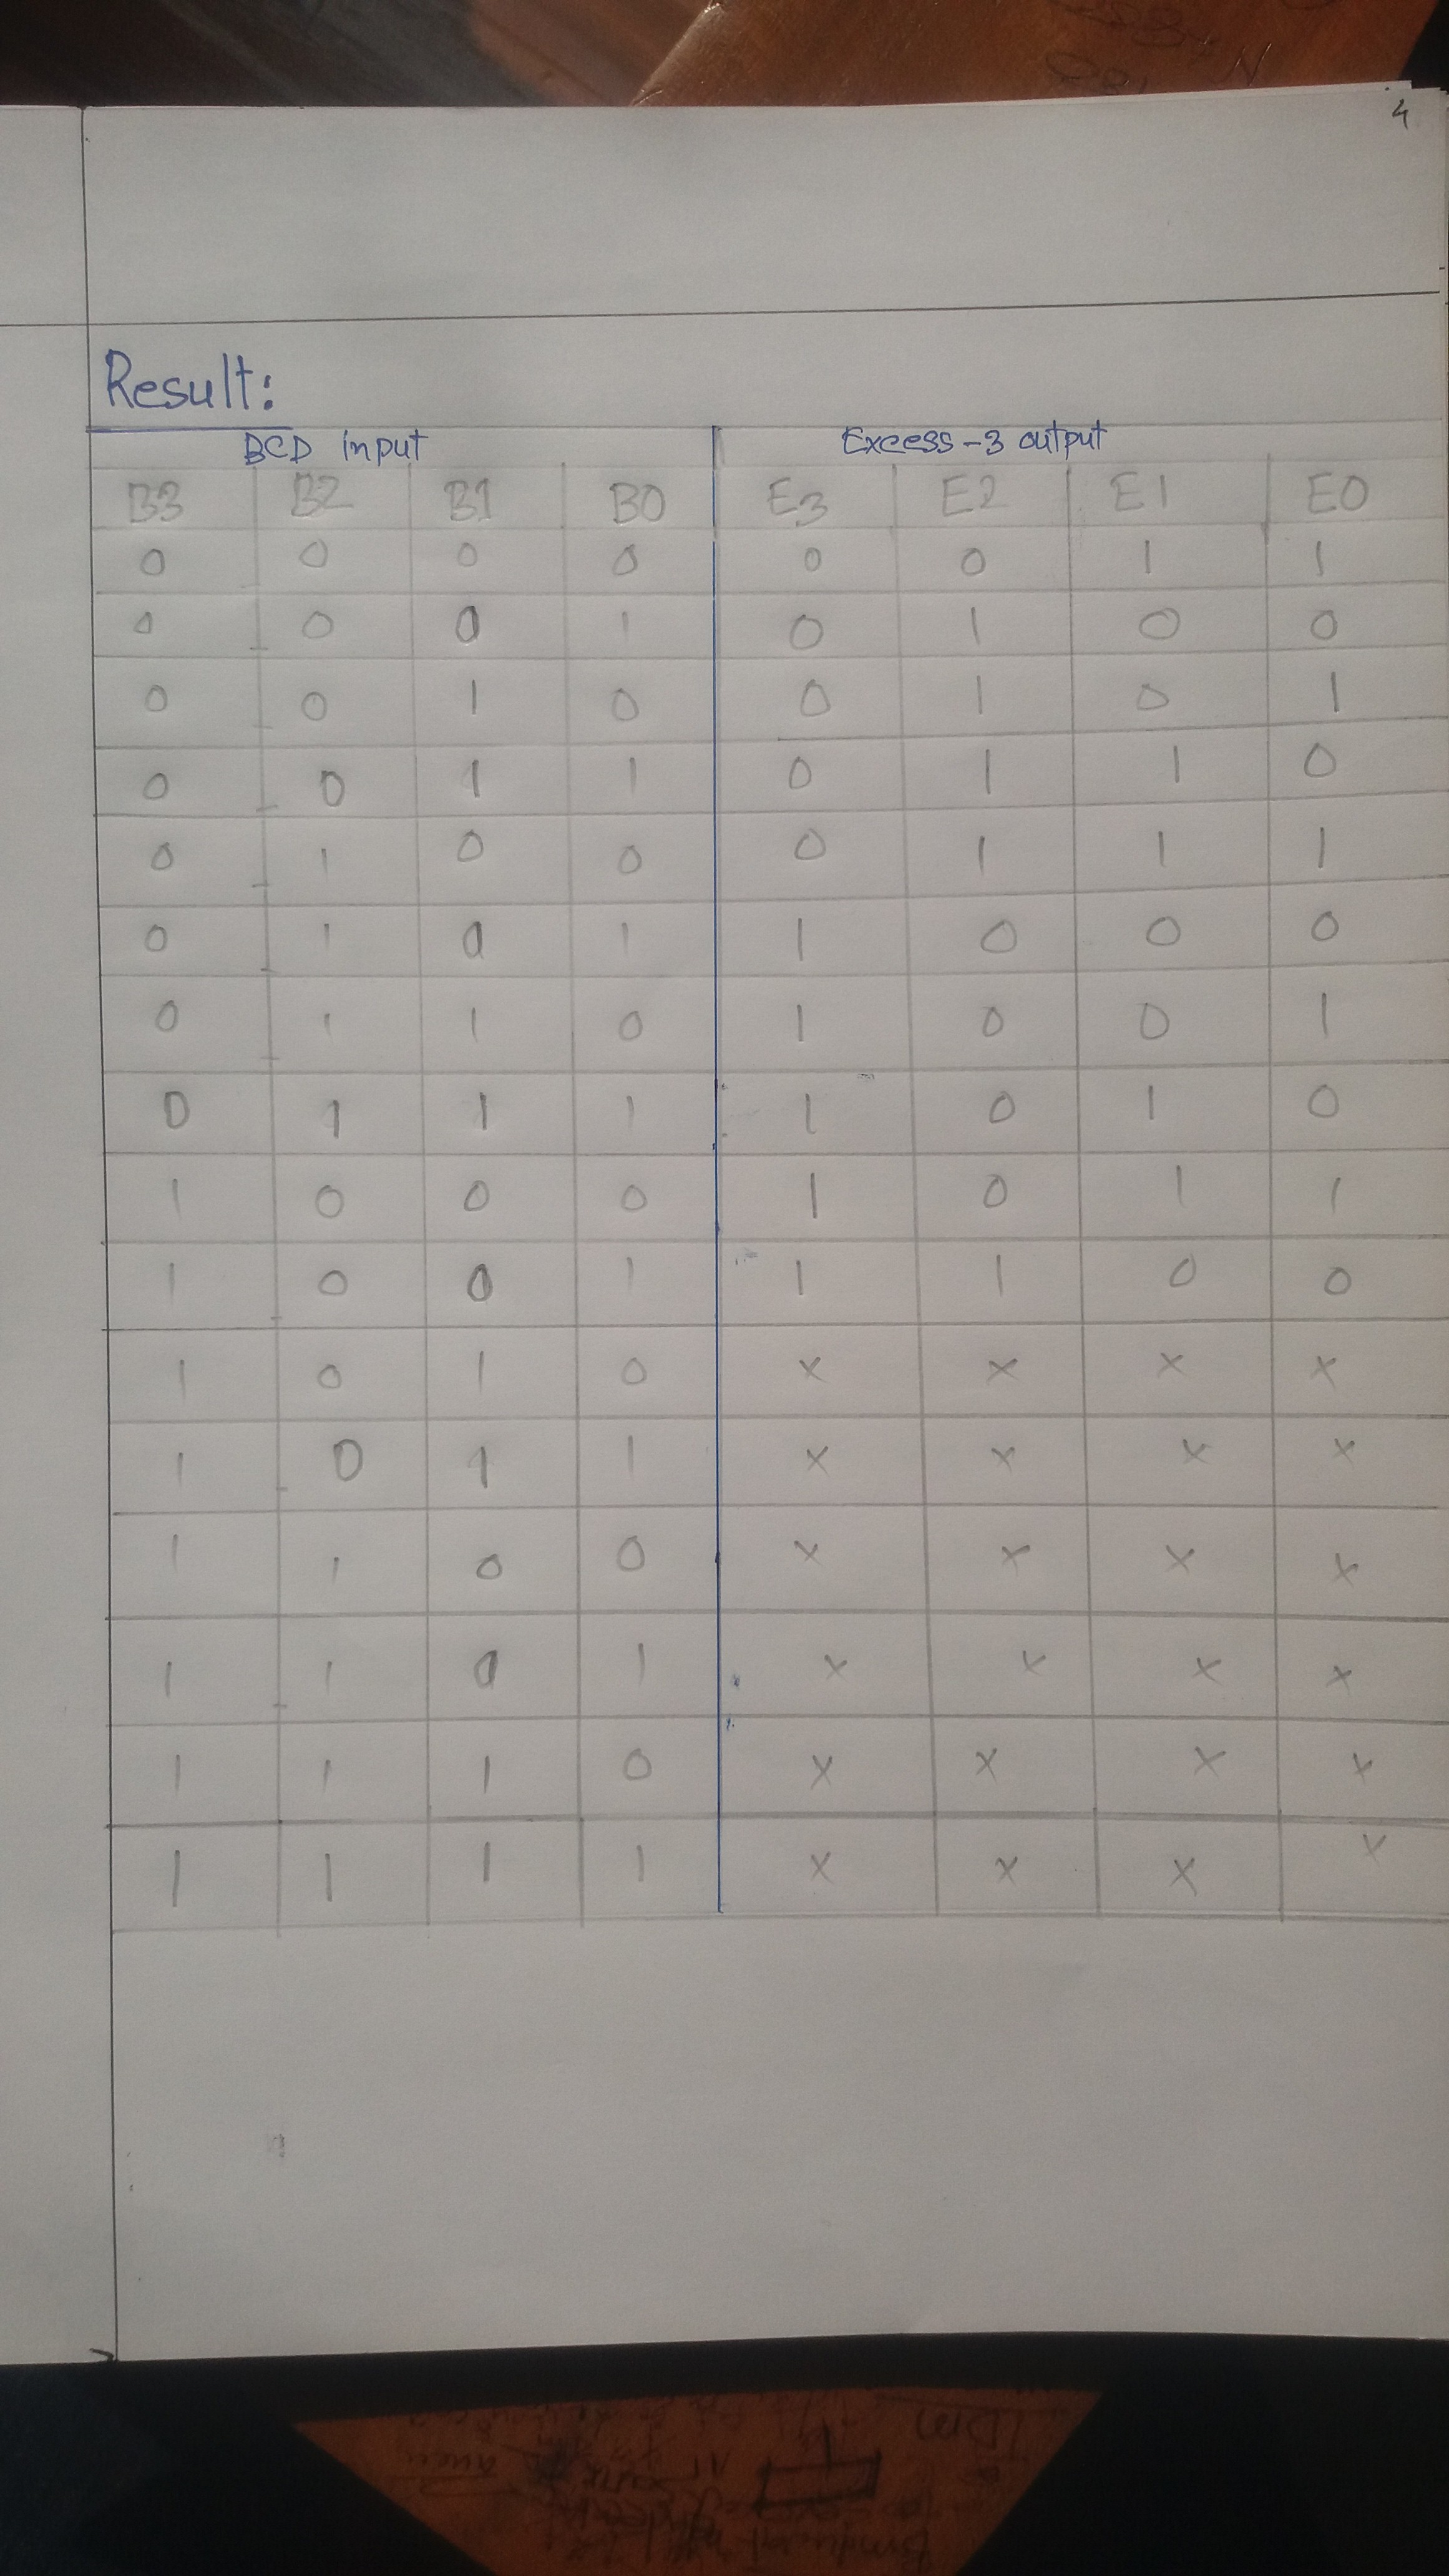 4
Result:
BCD input Excess-3 output
B3 B2 B1 B0 E3 E2 E1 E0
0 0 0 0 0 0 1 1
0 0 0 1 0 1 0 0
0 0 1 0 0 1 0 1
0 0 1 1 0 1 1 0
0 1 0 0 0 1 1 1
0 1 0 1 1 0 0 0
0 1 1 0 1 0 0 1
0 1 1 1 1 0 1 0
1 0 0 0 1 0 1 1
1 0 0 1 1 1 0 0
1 0 1 0 x x x x
1 0 1 1 x x x x
1 1 0 0 x x x x
1 1 0 1 x x x x
1 1 1 0 x x x x
1 1 1 1 x x x x